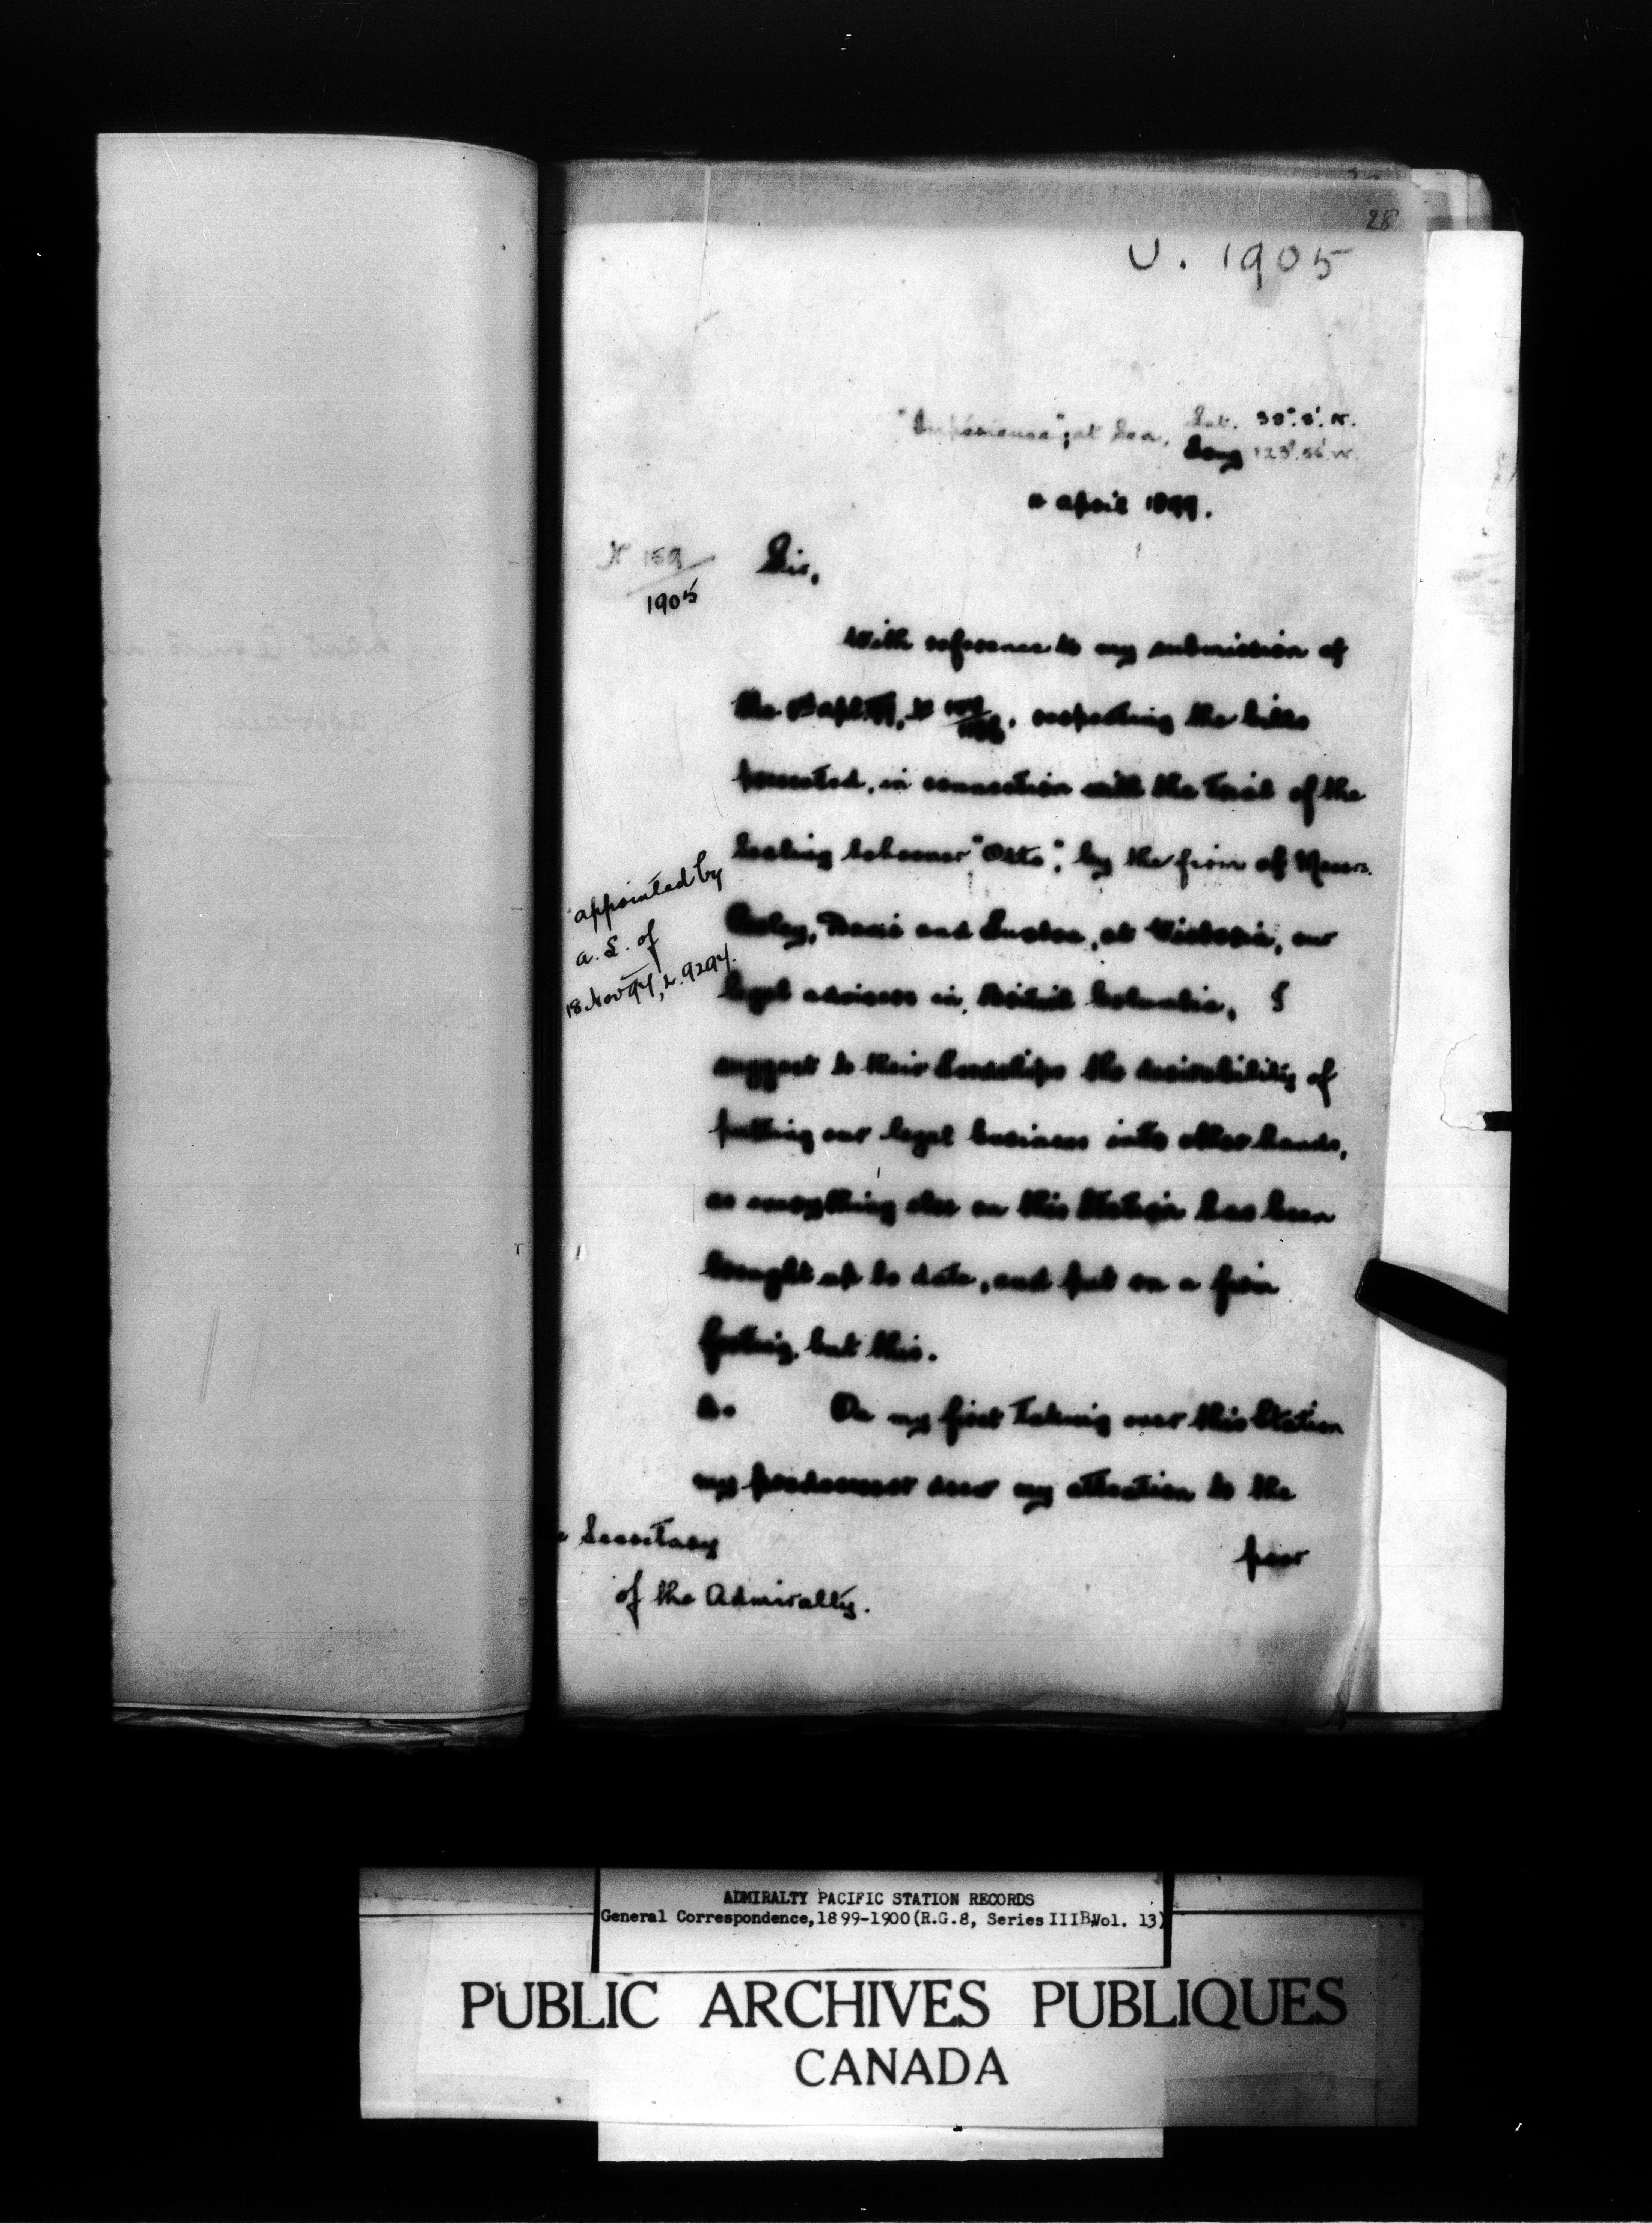 28
U. 1905
"Imperieuse", at Sea, Lat. 38°. 8'. N.
Long 123°. 56'. W.
April 1899.
Nº 159
/1905
Sir,
With reference to my submission of
the respecting the bills
presented, in connection with the trial of the
Sealing Schooner "Otto", by the firm of Messrs.
appointed by
a. L. of
18 Nov 94, L. 9294.
and Luxton, at Victoria, our
legal advisers in British Columbia, I
suggest to their Lordships the desirability of
putting our legal business into other hands,
as everything else on this Station has been
brought up to date, and put on a firm
footing, but this.
2. On my first taking over this Station
my predecessor drew my attention to the
poor
Secretary
of the Admiralty.
ADMIRALTY PACIFIC STATION RECORDS
General Correspondence, 1899-1900 (R.G.8, Series IIIB, Vol. 13)
PUBLIC ARCHIVES PUBLIQUES
CANADA